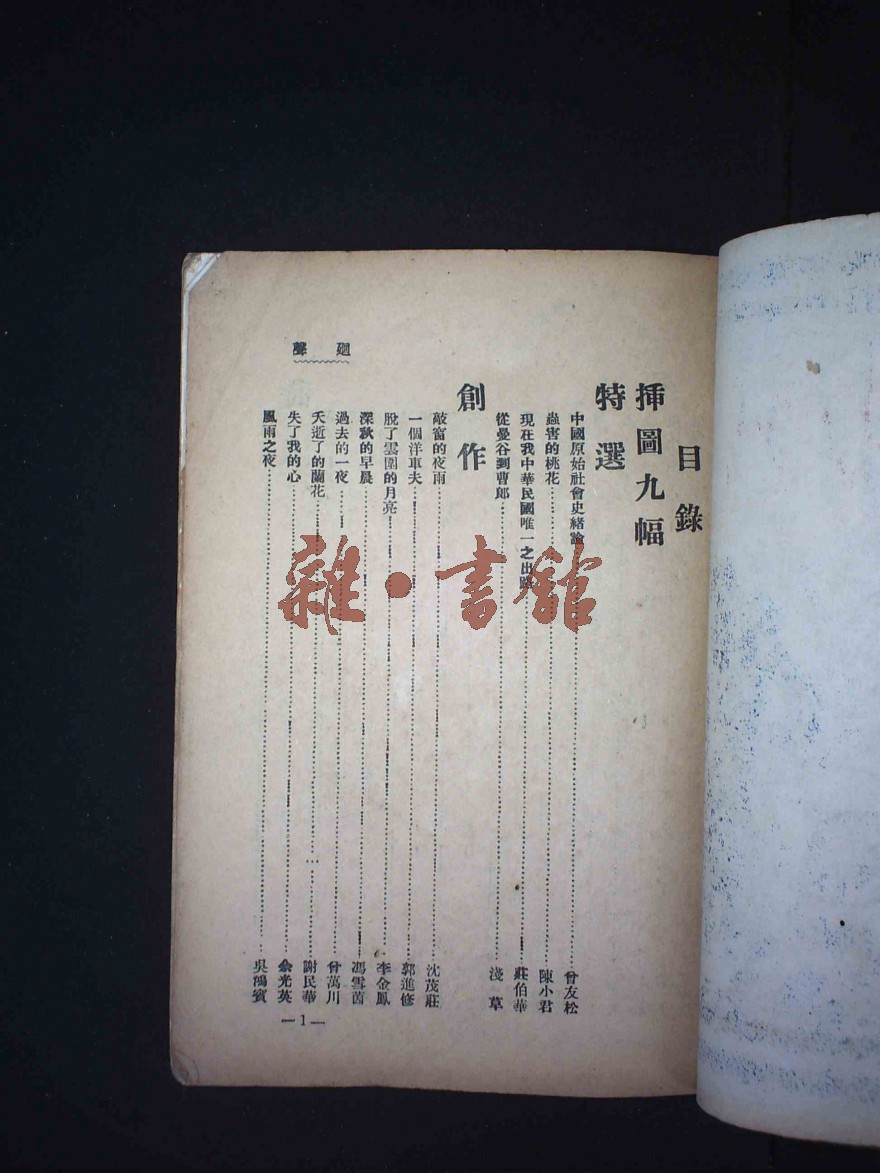 目錄
挿圖九幅
特選
中國原始社會史緒論 曾友松
蟲害的桃花 陳小君
現在我中華民國唯一之出路 莊伯華
從曼谷到曹郎 淺草
創作
敲窗的夜雨 沈茂莊
一個洋車夫 郭進修
脫了雲圍的月亮 李金鳳
深秋的早晨 馮雪茵
過去的一夜 曾萬川
夭逝了的蘭花 謝民華
失了我的心 余光英
風雨之夜 吳鴻賓
廻聲
—1—
雜·書館